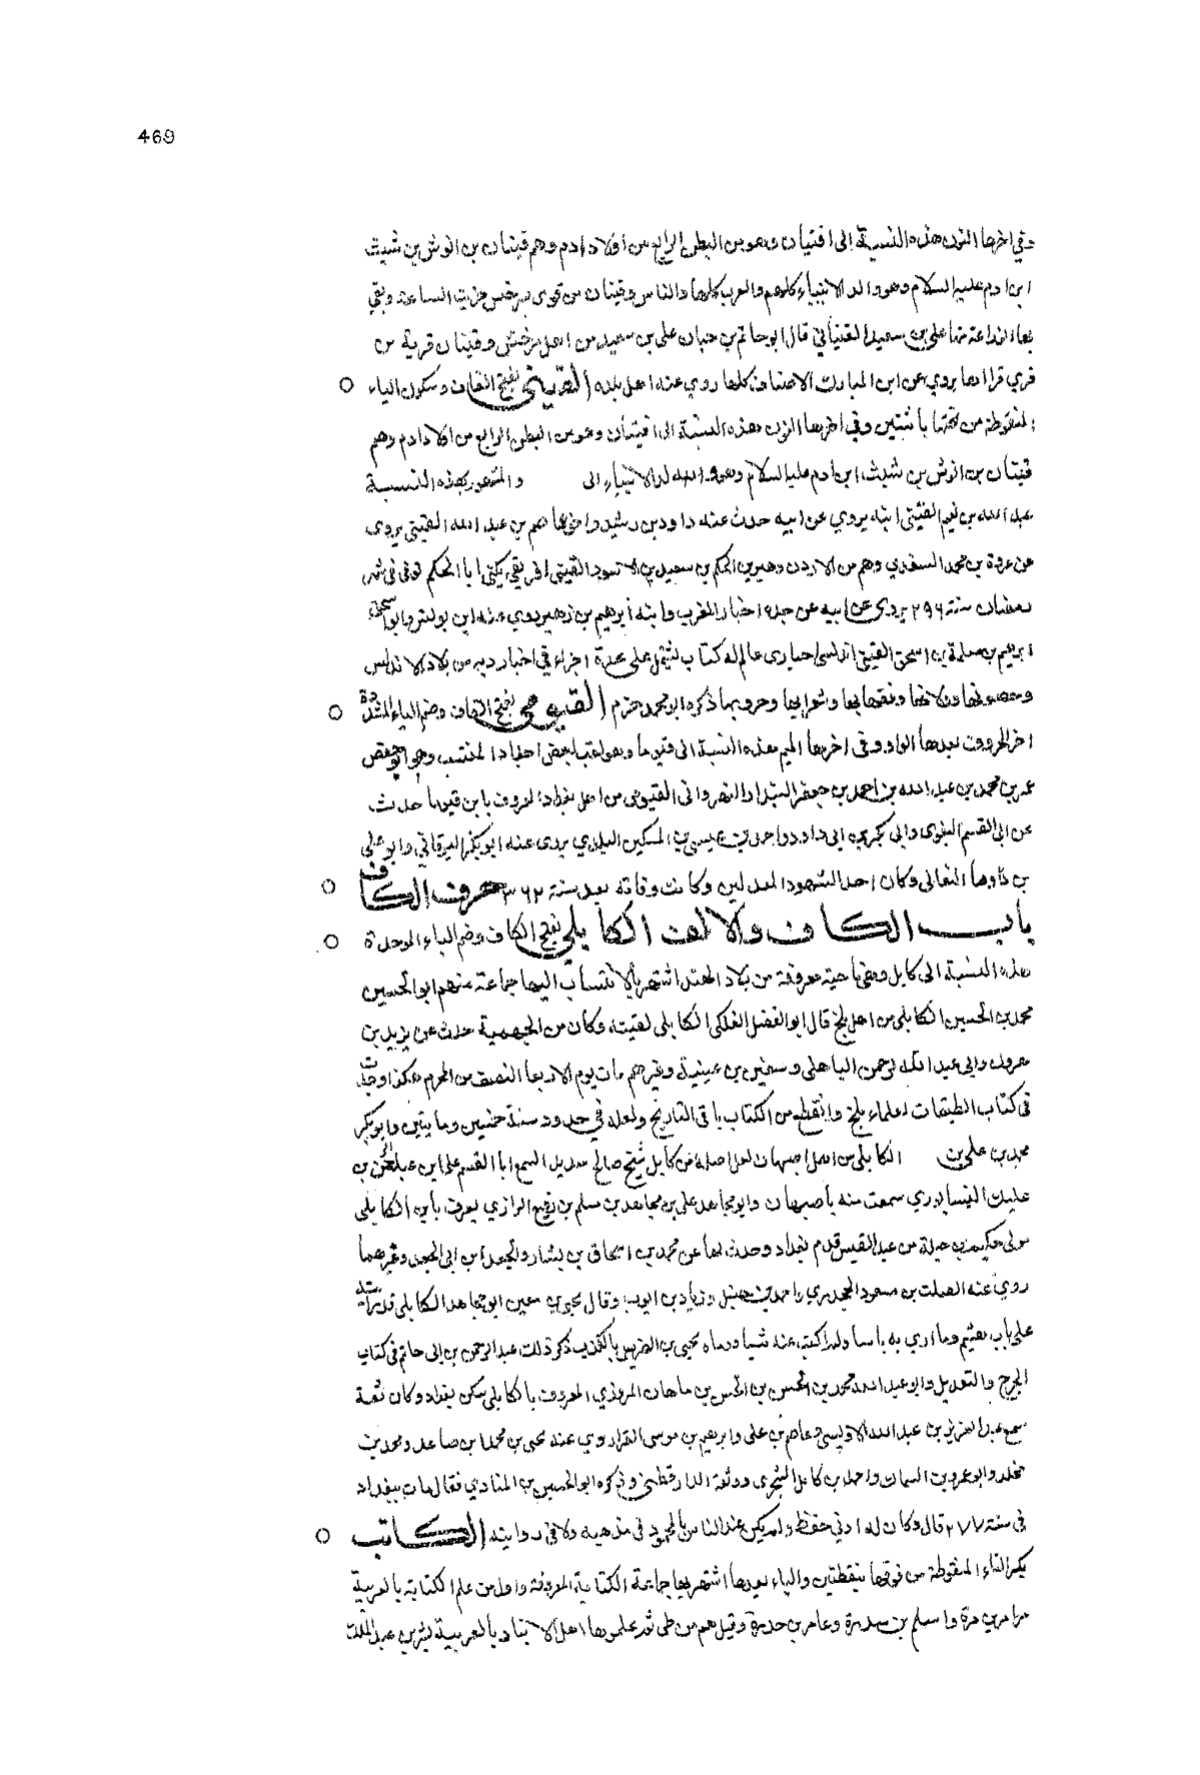 469
وفي اخرها النون هذه النسبة الى اقتيان وهو من البطن الرابع من اولاد ادم وهم قينان بن انوش بن شيث
ابن ادم عليه السلام وهو والد الانبياء كلهم والعرب كلها والناس وقينان من قرى سرخس الساعة وبقي
بها علي بن سعيد القيناني قال ابو حاتم بن حبان علي بن سعيد من اهل سرخس وقينان قرية من
قري بها يروي عن ابن المبارك الاصناف كلها روي عنه اهل بلده القيني بفتح القاف وسكون الياء
المنقوطة من تحتها باثنتين وفي اخرها النون هذه النسبة الى قينان وهو من البطن الرابع من اولاد ادم وهم
قينان بن انوش بن شيث ابن ادم عليه السلام وهو الى والمشهور بهذه النسبة
عبد الله بن نعيم القيني ابنه يروي عن ابيه حدث عنه داود بن رشيد بن عبد الله القيني يروى
عن عروة بن محمد السعدي وهم من الاردن وهير بن الحكم بن سعيد بن الاسود القيني افريقي يكنى ابا الحكم توفى في شهر
رمضان سنة ٢٩٦ يروى عن ابيه عن جده اخبار المغرب وابنه ابرهيم بن زهير يروي عنه ابن يونس وابو اسحق
ابرهيم بن سلمة بن اسحق القيني اندلسي اخبارى عالم له كتاب يشتمل على عدة اجزاء في اخبار ريه من بلاد الاندلس
وحصونها وولاتها وفقهائها وشعرائها وحروبها ذكره ابو محمد بن حزم القيومي بفتح القاف وضم الياء المشددة
اخر الحروف بعدها الواو وفي اخرها الميم هذه النسبة الى قيوما وهو لقب لبعض اجداد المنتسب وهو ابو حفص
عمر بن محمد بن عبد الله بن احمد بن جعفر البندار النهرواني القيومي من اهل بغداد المعروف بابن قيوما حدث
عن ابي القسم البغوي وابي بكر بن ابي داود واحمد بن عيسى بن المسكين البلدي يروى عنه ابو بكر البرقاني وابو علي
بن دوما النعالي وكان احد الشهود المعدلين وكانت وفاته بعد سنة ٣٦٢ حرف الكاف
باب الكاف والالف الكابلي بفتح الكاف وضم الباء الموحدة
هذه النسبة الى كابل وهي ناحية معروفة من بلاد الهند اشتهر بالانتساب اليها جماعة منهم ابو الحسين
محمد بن الحسين الكابلي من اهل بلخ قال ابو الفضل الفلكي الكابلي لقيته وكان من الجهمية حدث عن يزيد بن
هرون وابي عبد الرحمن الباهلي وسفين بن عيينة وغيرهم مات يوم الاربعا النصف من المحرم هكذا وجدت
في كتاب الطبقات لعلماء بلخ وانقطع من الكتاب باقي التاريخ ولعله في حدود سنة خمسين ومايتين وابو بكر
محمد بن علي بن الكابلي من اهل اصبهان لعل اصله من كابل شيخ صالح سديد السمع ابا القسم علي ابن عبد الرحمن بن
عليك النيسابوري سمعت منه باصبهان وابو مجاهد علي بن مجاهد بن مسلم بن رفيع الرازي يعرف بابن الكابلي
مولى حكيم بن جبلة من عبد القيس قدم بغداد وحدث بها عن محمد بن اسحاق بن يسار والجعد ابن ابي الجعد وغيرهما
روي عنه الصلت بن مسعود الجحدري واحمد بن حنبل وزياد بن ايوب وقال يحيى بن معين ابو مجاهد الكابلي قد رأيته
على باب هشيم وما ارى به باسا ولم اكتب عنه شيا ورماه يحيى بن الضريس بالكذب ذكر ذلك عبد الرحمن بن ابي حاتم في كتاب
الجرح والتعديل وابو عبد الله محمد بن الحسن بن الحسن بن ماهان المروذي المعروف بالكابلي سكن بغداد وكان ثقة
سمع عبد العزيز بن عبد الله الاويسي وعاصم بن علي وابرهيم بن موسى الفرا روي عنه يحيى بن محمد بن صاعد ومحمد بن
مخلد وابو عمرو بن السماك واحمد بن كامل الشجري ووثقه الدارقطني وذكره ابو الحسين بن المنادي فقال مات ببغداد
في سنة ٢٧٧ قال وكان له ادنى حفظ ولم يكن عند الناس بالمحمود في مذهبه ولا في روايته الكاتب
بكسر التاء المنقوطة من فوقها بنقطتين والباء بعدها اشتهر بها جماعة الكتابة المعروفة واول من علم الكتابة بالعربية
مرامر بن مرة واسلم بن سدرة وعامر بن جدرة وقيل هم من طي ثم علموها اهل الانبار بالعربية بشر بن عبد الملك